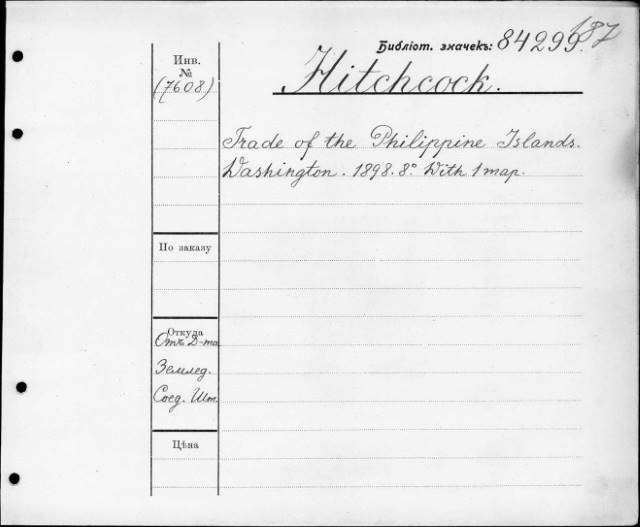 187
Библіот. значекъ: 84299.
Hitchcock.
Инв.
№
(7608)
Trade of the Philippine Islands.
Washington. 1898. 8° With 1 map.
По заказу
Откуда
Отъ Д-та
Землед.
Соед. Шт.
Цѣна